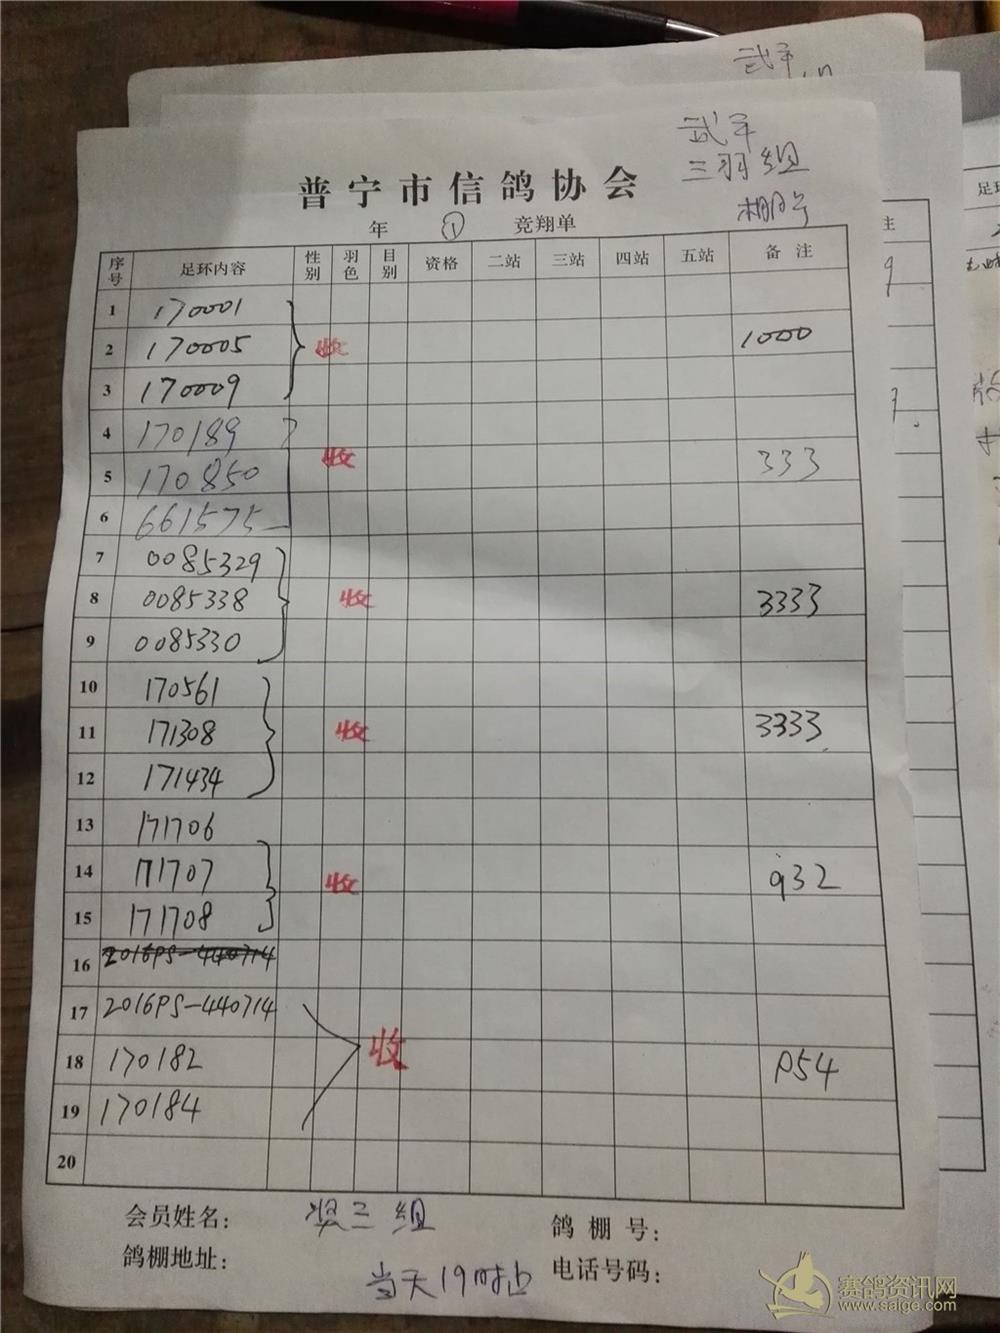 武平
武平
三羽组
棚号
普宁市信鸽协会
年 ① 竞翔单
序号 足环内容 性别 羽色 目别 资格 二站 三站 四站 五站 备注
1 170001
2 170005 收 1000
3 170009
4 170189
5 170850 收 333
6 661575
7 0085329
8 0085338 收 3333
9 0085330
10 170561
11 171308 收 3333
12 171434
13 171706
14 171707 收 932
15 171708
16 2016PS-440714
17 2016PS-440714
18 170182 收 P54
19 170184
20
会员姓名: 奖三组 鸽棚号:
鸽棚地址: 当天19时止 电话号码:
赛鸽资讯网
www.saige.com